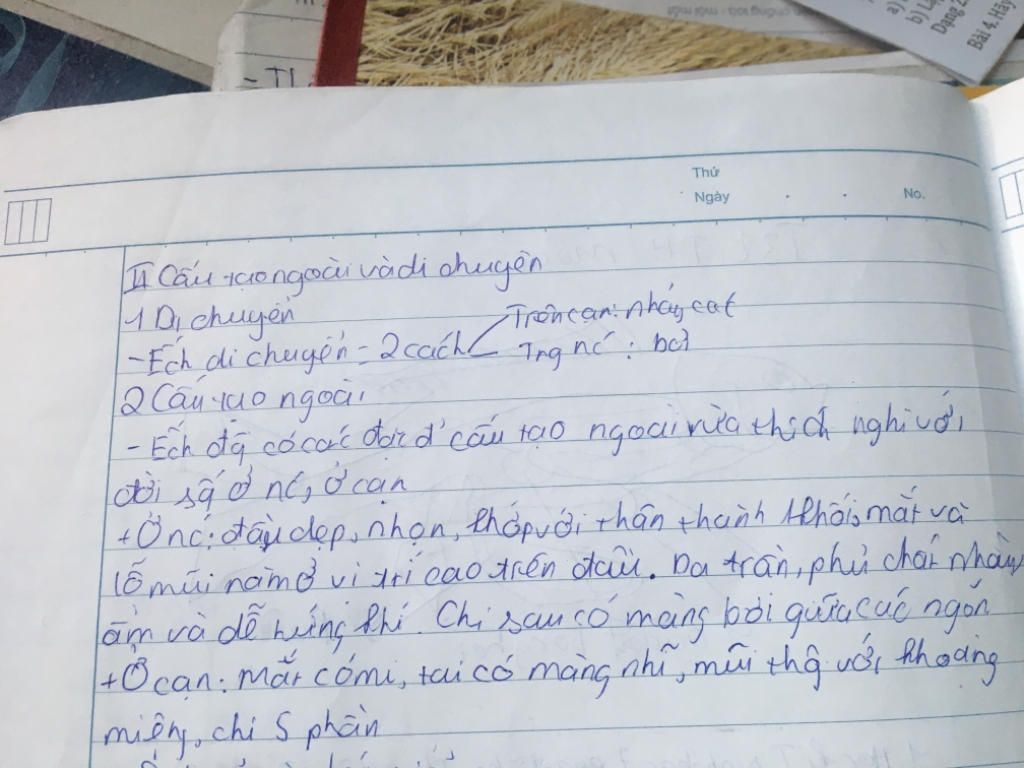 chống loá - mỏi mắt
a)
b) L
Dạng 2.
Bài 4. Hãy
- TL
Thứ
Ngày . . No.
II Cấu tạo ngoài và di chuyển
1 Di chuyển
- Ếch di chuyển = 2 cách < Trên cạn: nhảy cat
Trg nć : bơi
2 Cấu tạo ngoài
- Ếch đg̃ có các đặc đ' cấu tạo ngoài vừa thích nghi với
đời sg̃ ở nć, ở cạn
+ Ở nć: đầu dẹp, nhọn, khớp với thân thành 1 khối, mắt và
lỗ mũi nằm ở vị trí cao trên đầu. Da trần, phủ chất nhầy,
ẩm và dễ thấm khí. Chi sau có màng bơi giữa các ngón
+ Ở cạn: mắt có mi, tai có màng nhĩ, mũi thg̃ với khoang
miệng, chi 5 phần